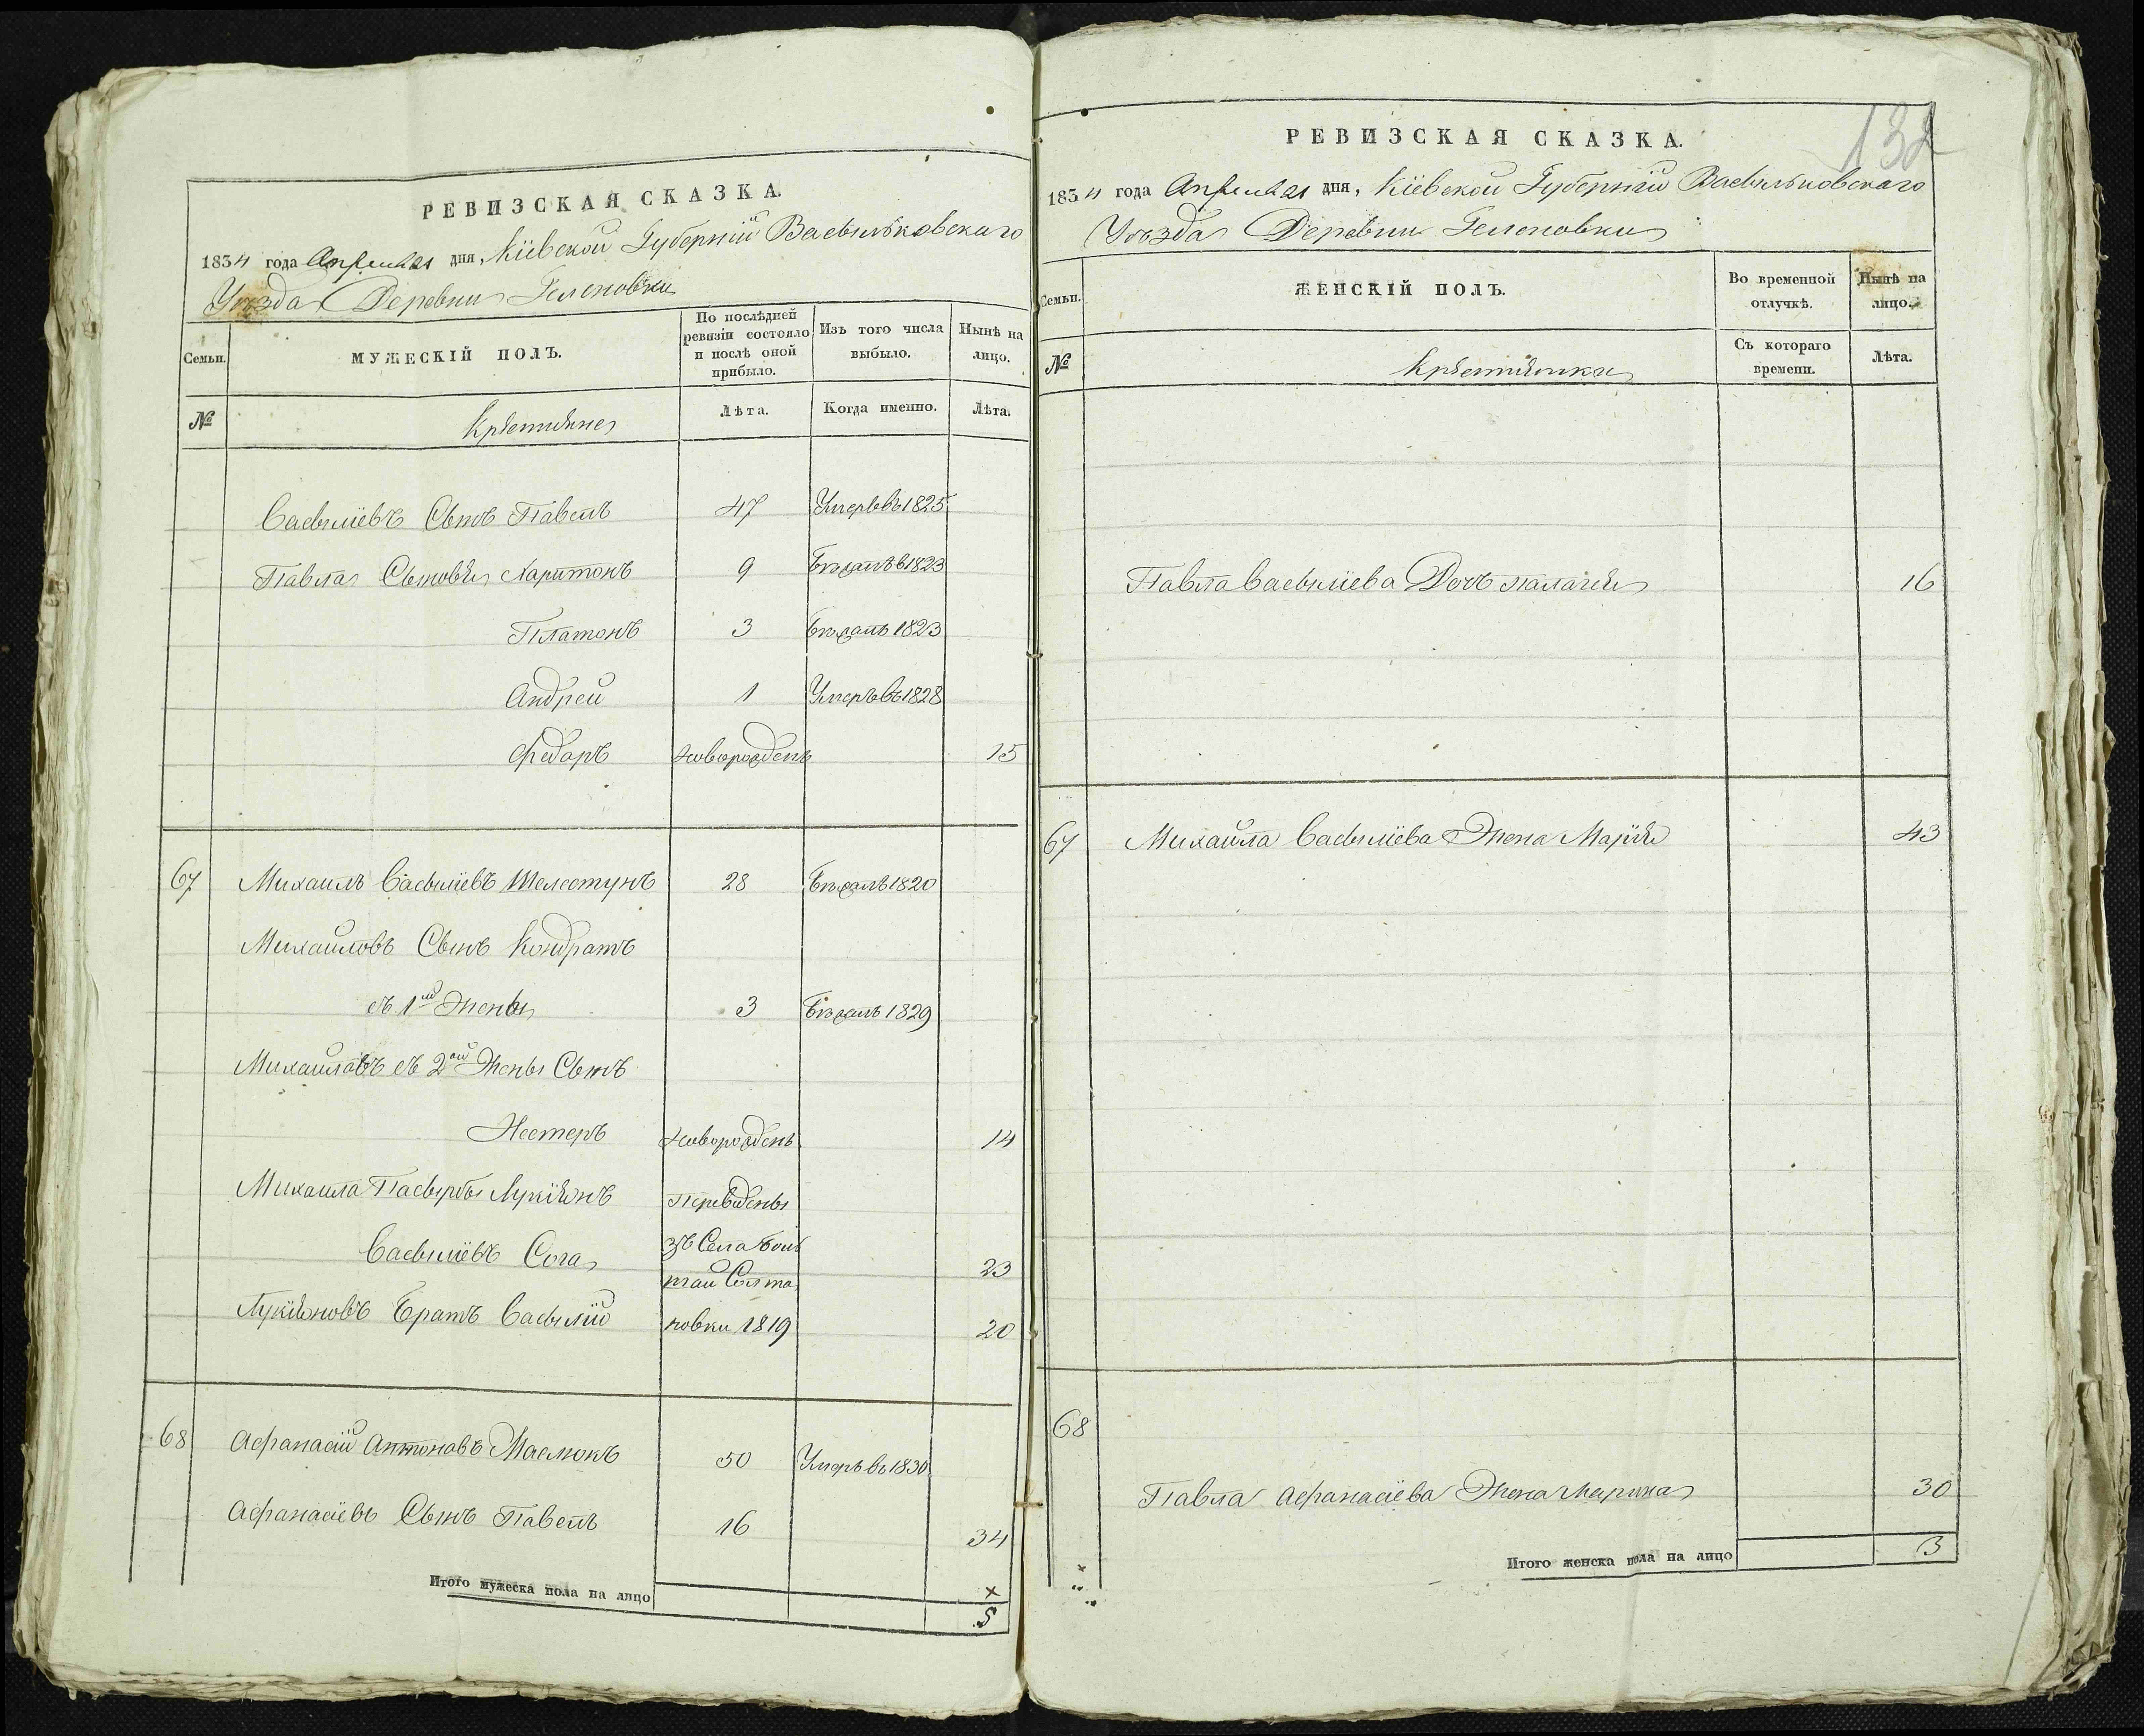 РЕВИЗСКАЯ СКАЗКА.
1834 года Апреля 21 дня, Кіевской Губерніи Васильковскаго
Уѣзда Деревни Геленовки
Семьи.
МУЖЕСКІЙ ПОЛЪ.
По послѣдней ревизіи состояло и послѣ оной прибыло.
Изъ того числа выбыло.
Нынѣ на лицо.
№
Крестяне
Лѣта.
Когда именно.
Лѣта.
Васылïевъ Сынъ Павелъ 47 Умеръ въ 1825
Павла Сыновя Харитонъ 9 Бѣжалъ в 1823
Платонъ 3 Бѣжалъ 1823
Андрей 1 Умеръ въ 1828
Федоръ новорожденъ 15
67 Михаилъ Васылïевъ Шелестунъ 28 Бѣжалъ 1820
Михайловъ Сынъ Кондратъ
съ 1й Жены 3 Бѣжалъ 1829
Михайловъ съ 2ой Жены Сынъ
Нестеръ новорожденъ 14
Михаила Пасынъбы Лукïянъ переведены
Васылïевъ Сога зъ Села 23
Солта
Лукïяновъ Братъ Васылïй новки 1819 20
68 Афанасïй Антоновъ Маслюкъ 50 Умеръ въ 1830
Афанасïевъ Сынъ Павелъ 16 34
Итого мужеска пола на лицо 5
132
РЕВИЗСКАЯ СКАЗКА.
1834 года Апреля 21 дня, Кіевской Губерніи Васильковскаго
Уѣзда Деревни Геленовки
Семьи.
ЖЕНСКІЙ ПОЛЪ.
Во временной отлучкѣ.
Нынѣ на лицо.
№
Крестянки
Съ котораго времени.
Лѣта.
Павла Васылïева Дочъ Палагея 16
67 Михайла Васылïева Жена Марïя 43
68
Павла Афанасïева Жена Марина 30
Итого женска пола на лицо 3